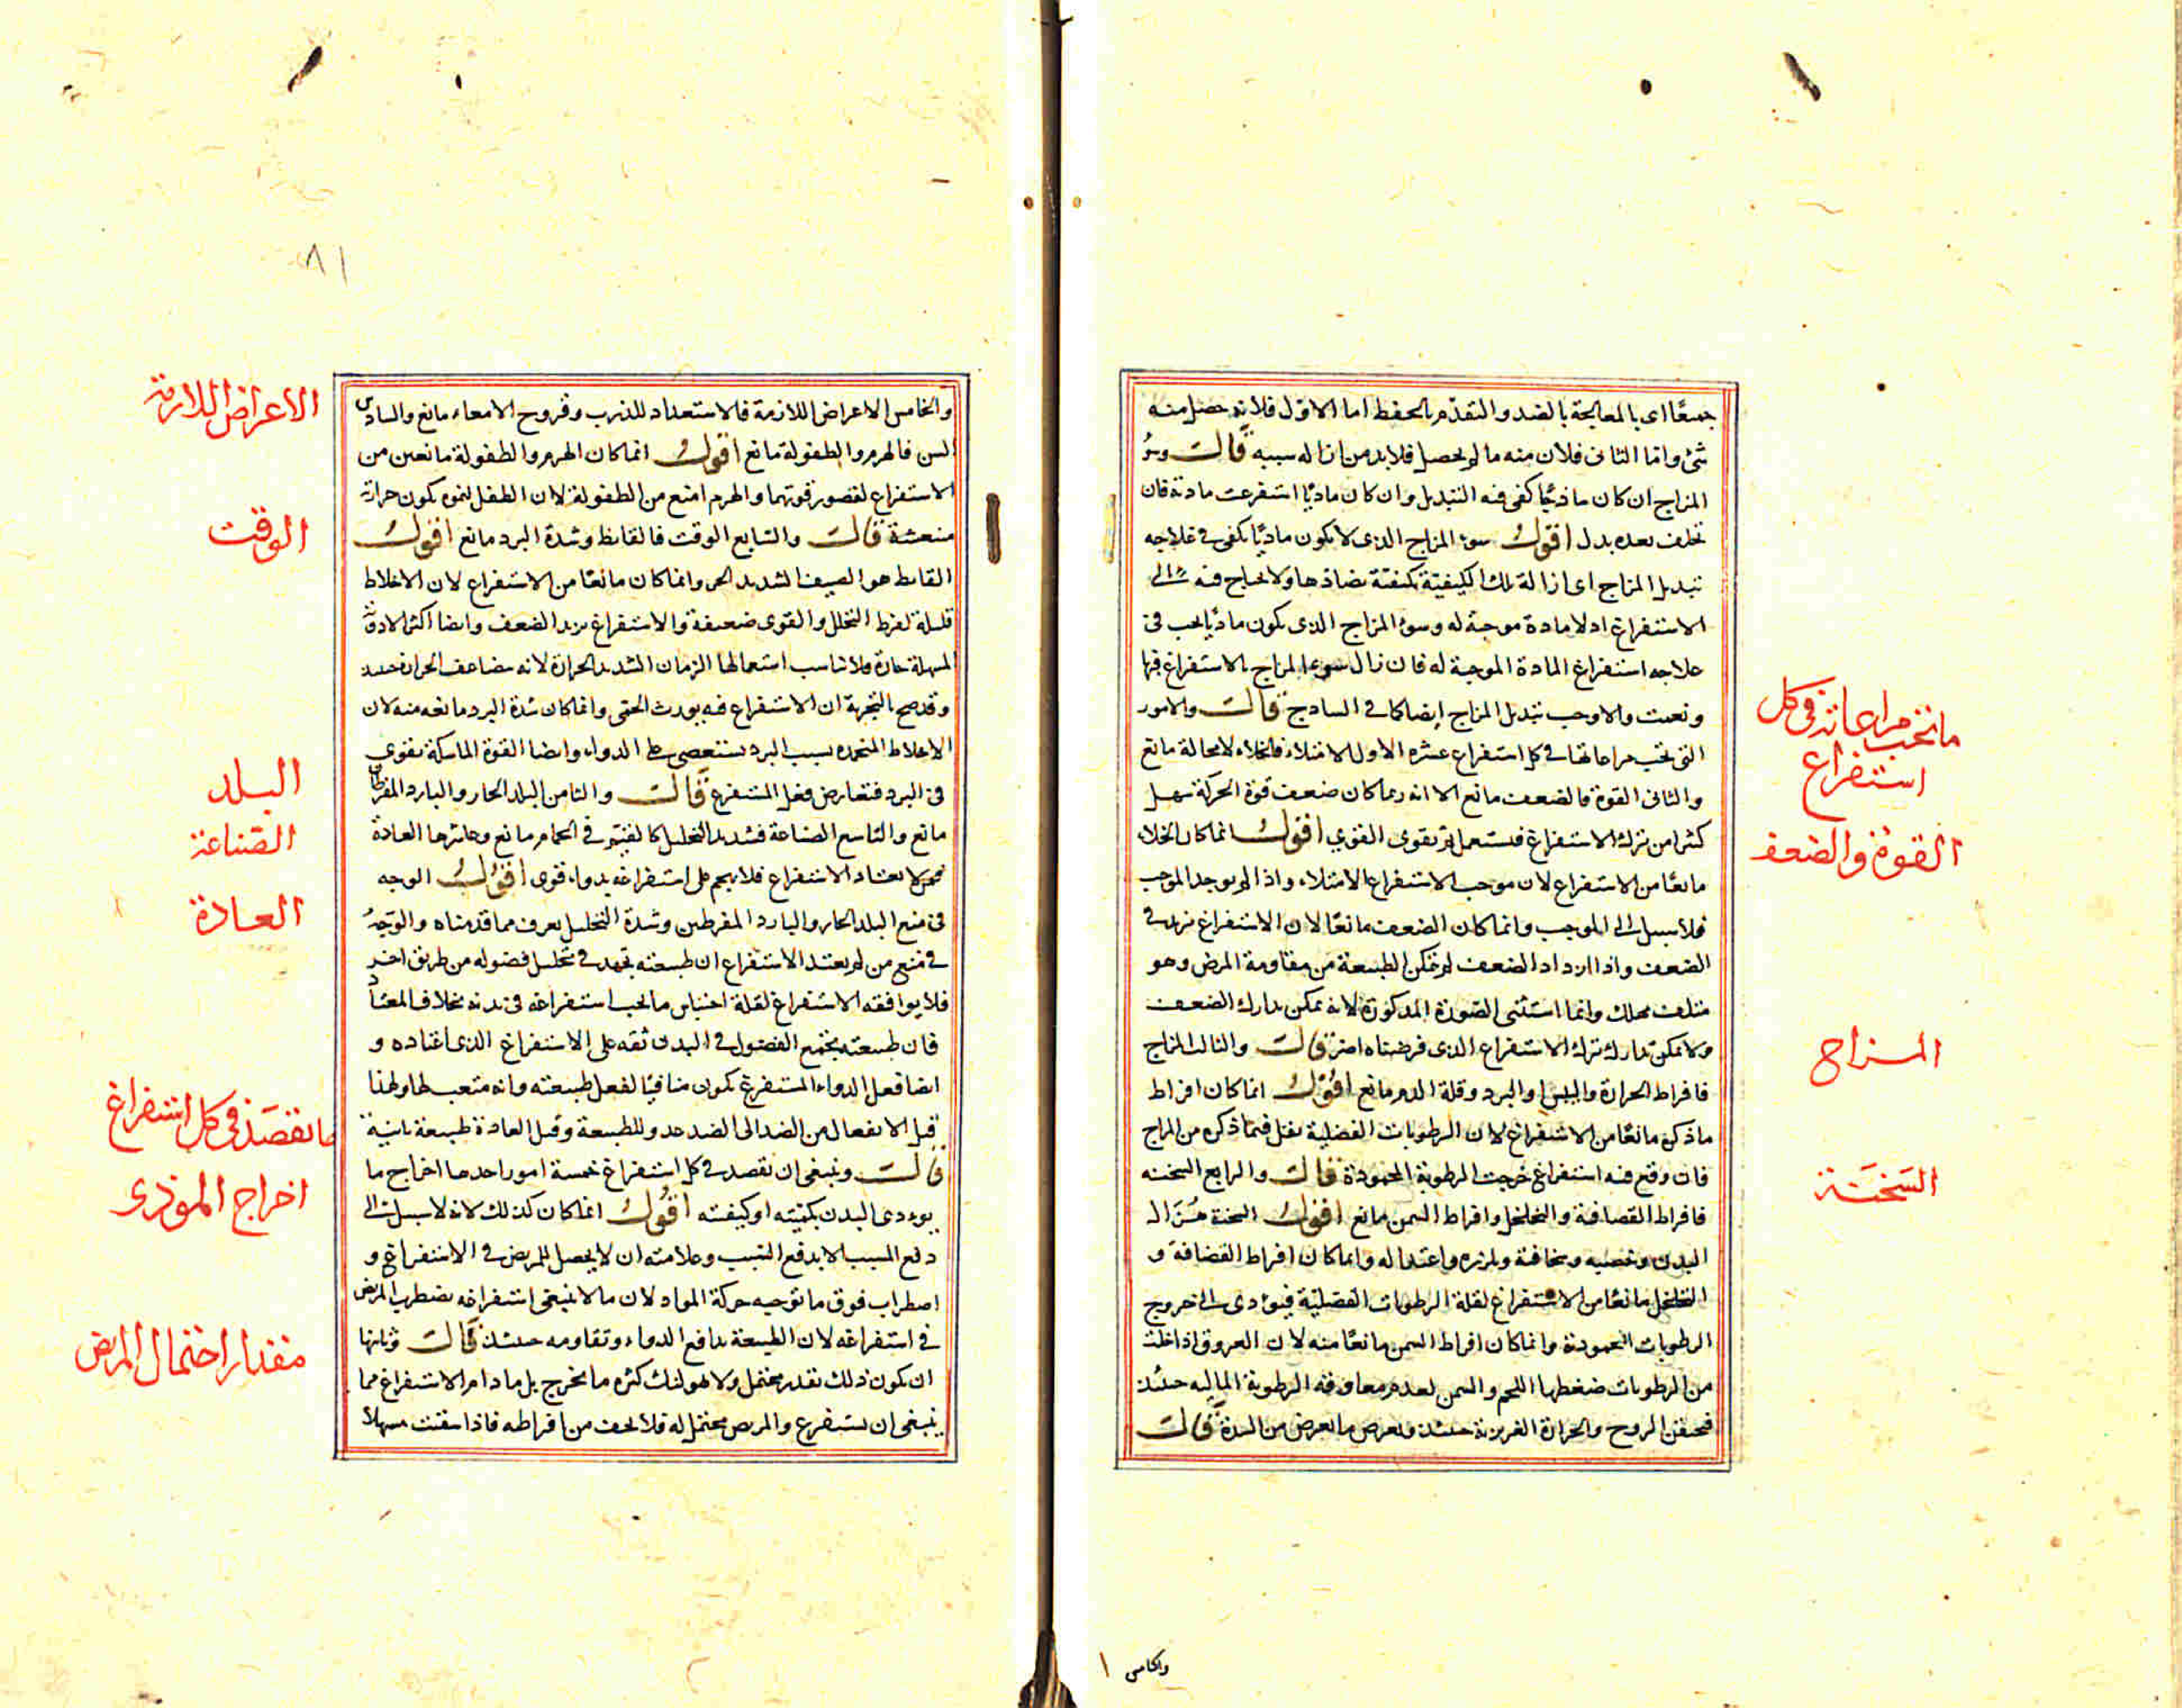 جميعًا اى بالمعالجة بالضد والتقدّم بالحفظ اما الاوّل فلانه حصل منه
شئ واما الثانى فلان منه ما لم يحصل فلابد من ازالة سببه قالت وسوُ
المزاج ان كان ماذيًا كفى فيه التبديل وان كان ماديًا استفرغت مادته فان
تخلف بعده بدل اقول سوء المزاج الذى لا يكون ماديًا يكفى فى علاجه
تبديل المزاج اى ازالة تلك الكيفيّة بكيفيّة تضادها ولا يحتاج فيه الى
الاستفراغ اذ لا مادة موجبة له وسوء المزاج الذى يكون ماديًا يجب فى
علاجه استفراغ المادة الموجبة له فان زال سوء المزاج بالاستفراغ فبها
ونعمت والا وجب تبديل المزاج ايضا كما فى الساذج قالت والامور
التى تجب مراعاتها فى كل استفراغ عشره الاول الامتلاء فالخلاء لا محالة مانع
والثانى القوة فالضعف مانع الا انه ربما كان ضعف قوة الحركة سهل
كثيرا من ترك الاستفراغ فيستعمل ثم يقوى القوي اقول انما كان الخلاء
مانعًا من الاستفراغ لان موجب الاستفراغ الامتلاء واذا لم يوجد الموجب
فلا سبيل الى الموجب وانما كان الضعف مانعًا لان الاستفراغ يزيد فى
الضعف واذا ازداد الضعف لم تتمكن الطبيعة من مقاومة المرض وهو
متلف مهلك وانما استثنى الصّورة المذكورة لانه يمكن تدارك الضعف
ولا يمكن تدارك ترك الاستفراغ الذى فرضناه اضر قالت والثالث المزاج
فافراط الحرارة واليبس او البرد وقلة الدم مانع اقول انما كان افراط
ماذكره مانعًا من الاستفراغ لان الرطوبات الفضلية تقل فيما ذكره من المزاج
فان وقع فيه استفراغ خرجت الرطوبة المحمودة قالت والرابع السحنه
فافراط القصافة والتخلخل وافراط السمن مانع اقول السحنة هُزال
البدن وخصبه وسخافته وتلززه واعتداله وانما كان افراط القضافة و
التخلخل مانعًا من الاستفراغ لقلة الرطوبات الفضليّة فيؤدى الى خروج
الرطوبات المحمودة وانما كان افراط السمن مانعًا منه لان العروق اذا خلت
من الرطوبات ضغطها اللحم والسمن لعدم معاوقة الرطوبة المالية حينئذ
فيحتقن الروح والحرارة الغريزية حينئذ ويعرض ما يعرض من السدة قالت
ما تجب مراعاته فى كل
استفراغ
القوة والضعف
المزاج
السَحْنَة
والخامس
والخامس الاعراض اللازمة فالاستعداد للذرب وقروح الامعاء مانع والسادس
السن فالهرم والطفولة مانع اقول انما كان الهرم والطفولة مانعين من
الاستفراغ لقصور قوتهما والهرم امنع من الطفولة لان الطفل لنموه يكون حرارته
منتعشة قالت والسّابع الوقت فالقايظ وشدّة البرد مانع اقول
القايظ هو الصيف الشديد الحر وانما كان مانعًا من الاستفراغ لان الاخلاط
قليلة لفرط التحلل والقوى ضعيفة والاستفراغ يزيد الضعف وايضا اكثر الادوية
المسهلة حارّة فلا تناسب استعمالها الزمان الشديد الحرارة لانه يتضاعف الحرارة حينئذ
وقد صح بالتجربة ان الاستفراغ فيه يورث الحمّى وانما كان شدّة البرد مانعه منه لان
الاخلاط المتجمده بسبب البرد تستعصى على الدواء وايضا القوة الماسكة تقوى
فى البرد فتعارض فعل المستفرغ قالت والثامن البلد الحار والبارد المفرطان
مانع والتاسع الصّناعة فشديد التحليل كالقيّم فى الحمام مانع وعاشرها العادة
فمن لا يعتاد الاستفراغ فلا يهجم على استفراغه بدواء قوى اقول الوجه
فى منع البلد الحار والبارد المفرطين وشدّة التحليل يعرف مما قدمناه والوَجهُ
فى منع من لم يعتد الاستفراغ ان طبيعته تجهد فى تحليل فضوله من طريق اخر
فلا يوافقه الاستفراغ لقلة احتباس ما يجب استفراغه فى بدنه بخلاف المعتاد
فان طبيعته يجتمع الفضول فى البدن ثقه على الاستفراغ الذى اعتاده و
ايضا فعل الدواء المستفرغ يكون منافيًا لفعل طبيعته وانه متعب لها ولهذا
قيل الانفعال من الضد الى الضد عدو للطبيعة وقيل العادة طبيعة ثانية
قالت وينبغى ان يقصد فى كل استفراغ خمسة امور احدها اخراج ما
يوءدى البدن بكميّته او كيفيّته اقول انما كان كذلك لانه لا سبيل الى
دفع المسبب الا بدفع السّبب وعلامته ان لا يحصل للمريض فى الاستفراغ و
اضطراب فوق ما توجبه حركة المواد لان ما لا ينبغى استفراغه يضطرب المريض
فى استفراغه لان الطبيعة تدافع الدواء وتقاومه حينئذ قالت وثانيها
ان يكون ذلك بقدر محتمل ولا يهولنك كثرة ما يخرج بل ما دام الاستفراغ مما
ينبغى ان يستفرغ والمريض محتمل له فلا تخف من افراطه فاذا سقيت مسهلا
٨١
الاعراض اللازمة
الوقت
البلد
الصّناعة
العادة
ما يقصَد فى كل استفراغ
اخراج الموذى
مقدار احتمال المريض